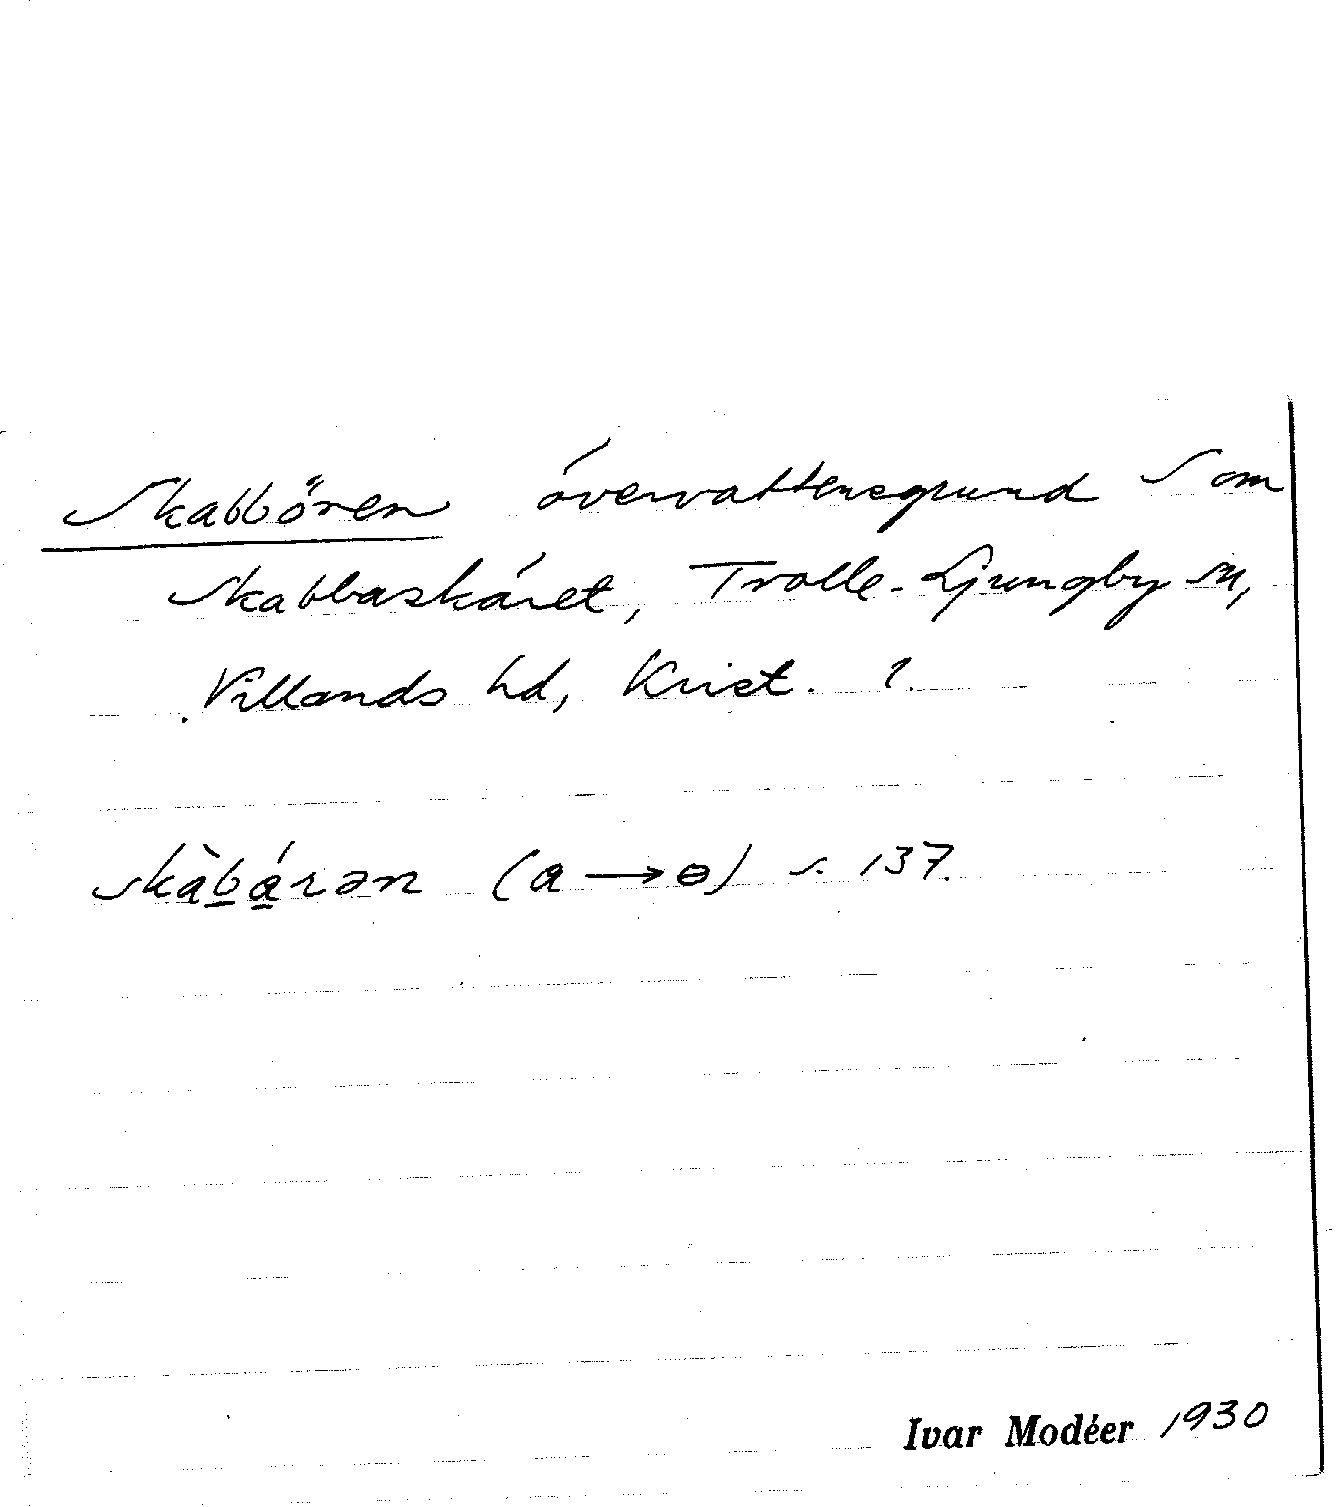 Skabbören övervattensgrund S om
Skabbaskäret, Trolle-Ljungby sn,
Villands hd, Krist. l.
skàb̲á̲rən (a → ɵ) s. 137.
Ivar Modéer 1930